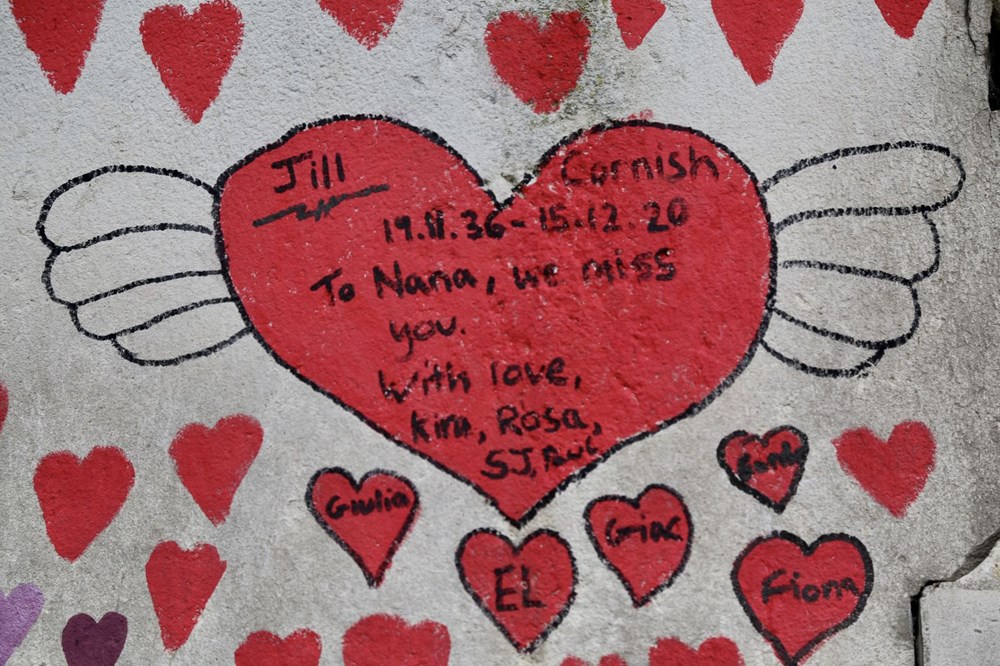 Jill Cornish
19.11.36 - 15.12.20
To Nana, we miss
you.
With love,
Kim, Rosa,
SJ, Paul
Giulia
EL
Giac
Fiona